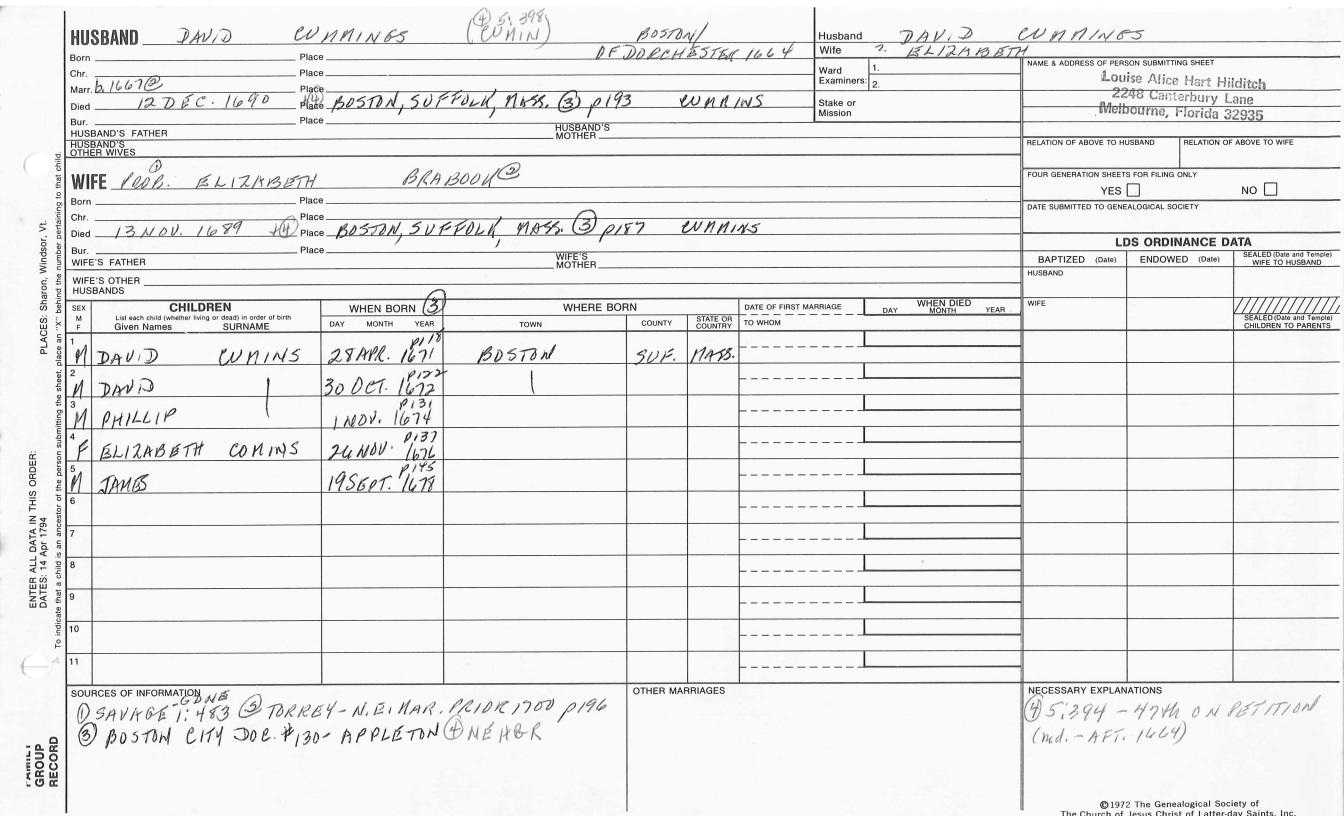 ④ 5:398
HUSBAND DAVID CUMMINGS (CUMIN) BOSTON/
Born Place OF DORCHESTER 1664
Chr. Place
Marr. b. 1667② Place
Died 12 DEC. 1690 Place BOSTON, SUFFOLK, MASS. ③ p193 CUMMINS
Bur. Place
HUSBAND'S FATHER HUSBAND'S MOTHER
HUSBAND'S OTHER WIVES
Husband DAVID CUMMINGS
Wife ?. ELIZABETH
Ward Examiners: 1.
2.
Stake or Mission
NAME & ADDRESS OF PERSON SUBMITTING SHEET
Louise Alice Hart Hilditch
2248 Canterbury Lane
Melbourne, Florida 32935
RELATION OF ABOVE TO HUSBAND RELATION OF ABOVE TO WIFE
FOUR GENERATION SHEETS FOR FILING ONLY
YES NO
DATE SUBMITTED TO GENEALOGICAL SOCIETY
①
WIFE PROB. ELIZABETH BRABOOK②
Born Place
Chr. Place
Died 13 NOV. 1689 ④ Place BOSTON, SUFFOLK, MASS. ③ p187 CUMMINS
Bur. Place
WIFE'S FATHER WIFE'S MOTHER
WIFE'S OTHER HUSBANDS
LDS ORDINANCE DATA
BAPTIZED (Date) ENDOWED (Date) SEALED (Date and Temple) WIFE TO HUSBAND
HUSBAND
WIFE
SEALED (Date and Temple) CHILDREN TO PARENTS
SEX M F CHILDREN WHEN BORN ③ WHERE BORN DATE OF FIRST MARRIAGE WHEN DIED
List each child (whether living or dead) in order of birth
Given Names SURNAME DAY MONTH YEAR TOWN COUNTY STATE OR COUNTRY TO WHOM DAY MONTH YEAR
1 M DAVID CUMINS 28 APR. 1671 p118 BOSTON SUF. MASS.
2 M DAVID 30 OCT. 1672 p122
3 M PHILLIP 1 NOV. 1674 p131
4 F ELIZABETH COMINS 26 NOV. 1676 p137
5 M JAMES 19 SEPT. 1678 p145
6
7
8
9
10
11
SOURCES OF INFORMATION
① SAVAGE-GDNE 1:483 ② TORREY-N.E. MAR. PRIOR 1700 p196
③ BOSTON CITY DOC. #130- APPLETON ④ NEHGR
OTHER MARRIAGES
NECESSARY EXPLANATIONS
④ 5:394 - 47th ON PETITION
(md. - AFT. 1664)
©1972 The Genealogical Society of
The Church of Jesus Christ of Latter-day Saints, Inc.
ENTER ALL DATA IN THIS ORDER:
DATES: 14 Apr 1794 PLACES: Sharon, Windsor, Vt.
To indicate that a child is an ancestor of the person submitting the sheet, place an "X" behind the number pertaining to that child.
FAMILY
GROUP
RECORD